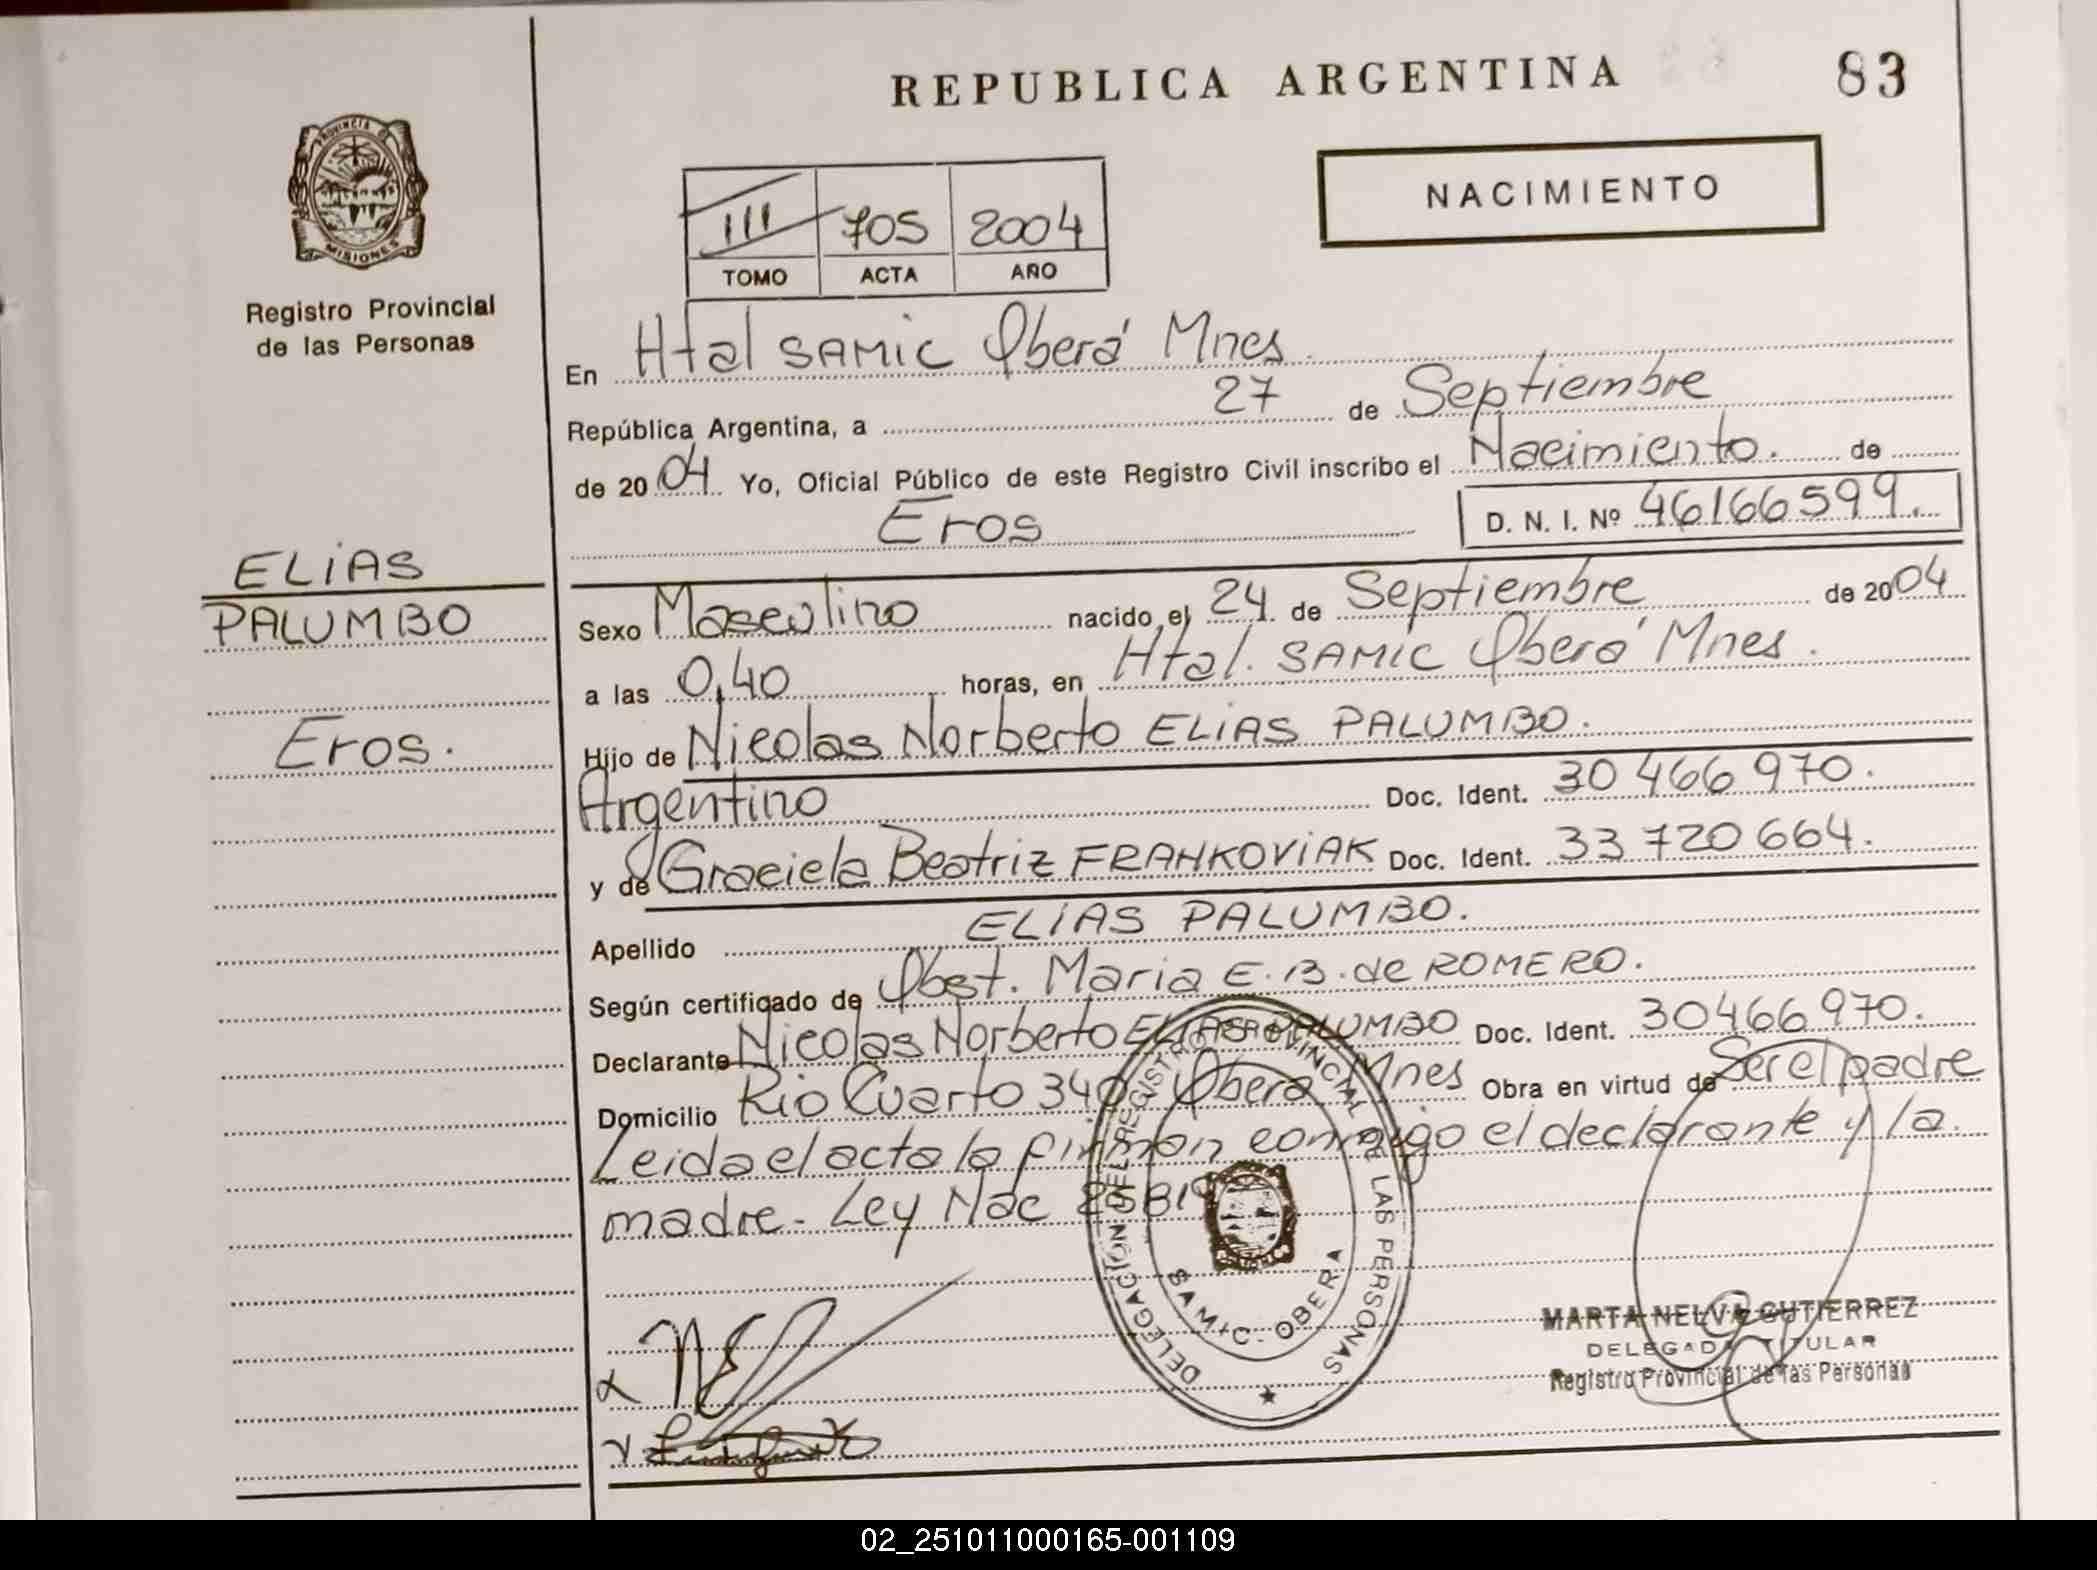 REPUBLICA ARGENTINA
83
NACIMIENTO
PROVINCIA DE
MISIONES
Registro Provincial
de las Personas
III 705 2004
TOMO ACTA AÑO
En Htal SAMIC Oberá Mnes.
República Argentina, a 27 de Septiembre
de 2004 Yo, Oficial Público de este Registro Civil inscribo el Nacimiento. de
Eros D. N. I. Nº 46166599.
ELIAS
PALUMBO
Eros.
Sexo Masculino nacido el 24 de Septiembre de 2004
a las 0,40 horas, en Htal. SAMIC Oberá Mnes.
Hijo de Nicolas Norberto ELIAS PALUMBO.
Argentino Doc. Ident. 30 466 970.
y de Graciela Beatriz FRANKOVIAK Doc. Ident. 33 720 664.
Apellido ELIAS PALUMBO.
Según certificado de Obst. Maria E. B. de ROMERO.
Declarante Nicolas Norberto ELIAS PALUMBO Doc. Ident. 30466970.
Domicilio Rio Cuarto 340 Oberá Mnes Obra en virtud de Ser el padre
Leida el acta la firman conmigo el declarante y la
madre. Ley Nac
DELEGACION DEL REGISTRO PROVINCIAL DE LAS PERSONAS
SAMIC - OBERA
MARTA NELVA GUTIERREZ
DELEGADA TITULAR
Registro Provincial de las Personas
02_251011000165-001109